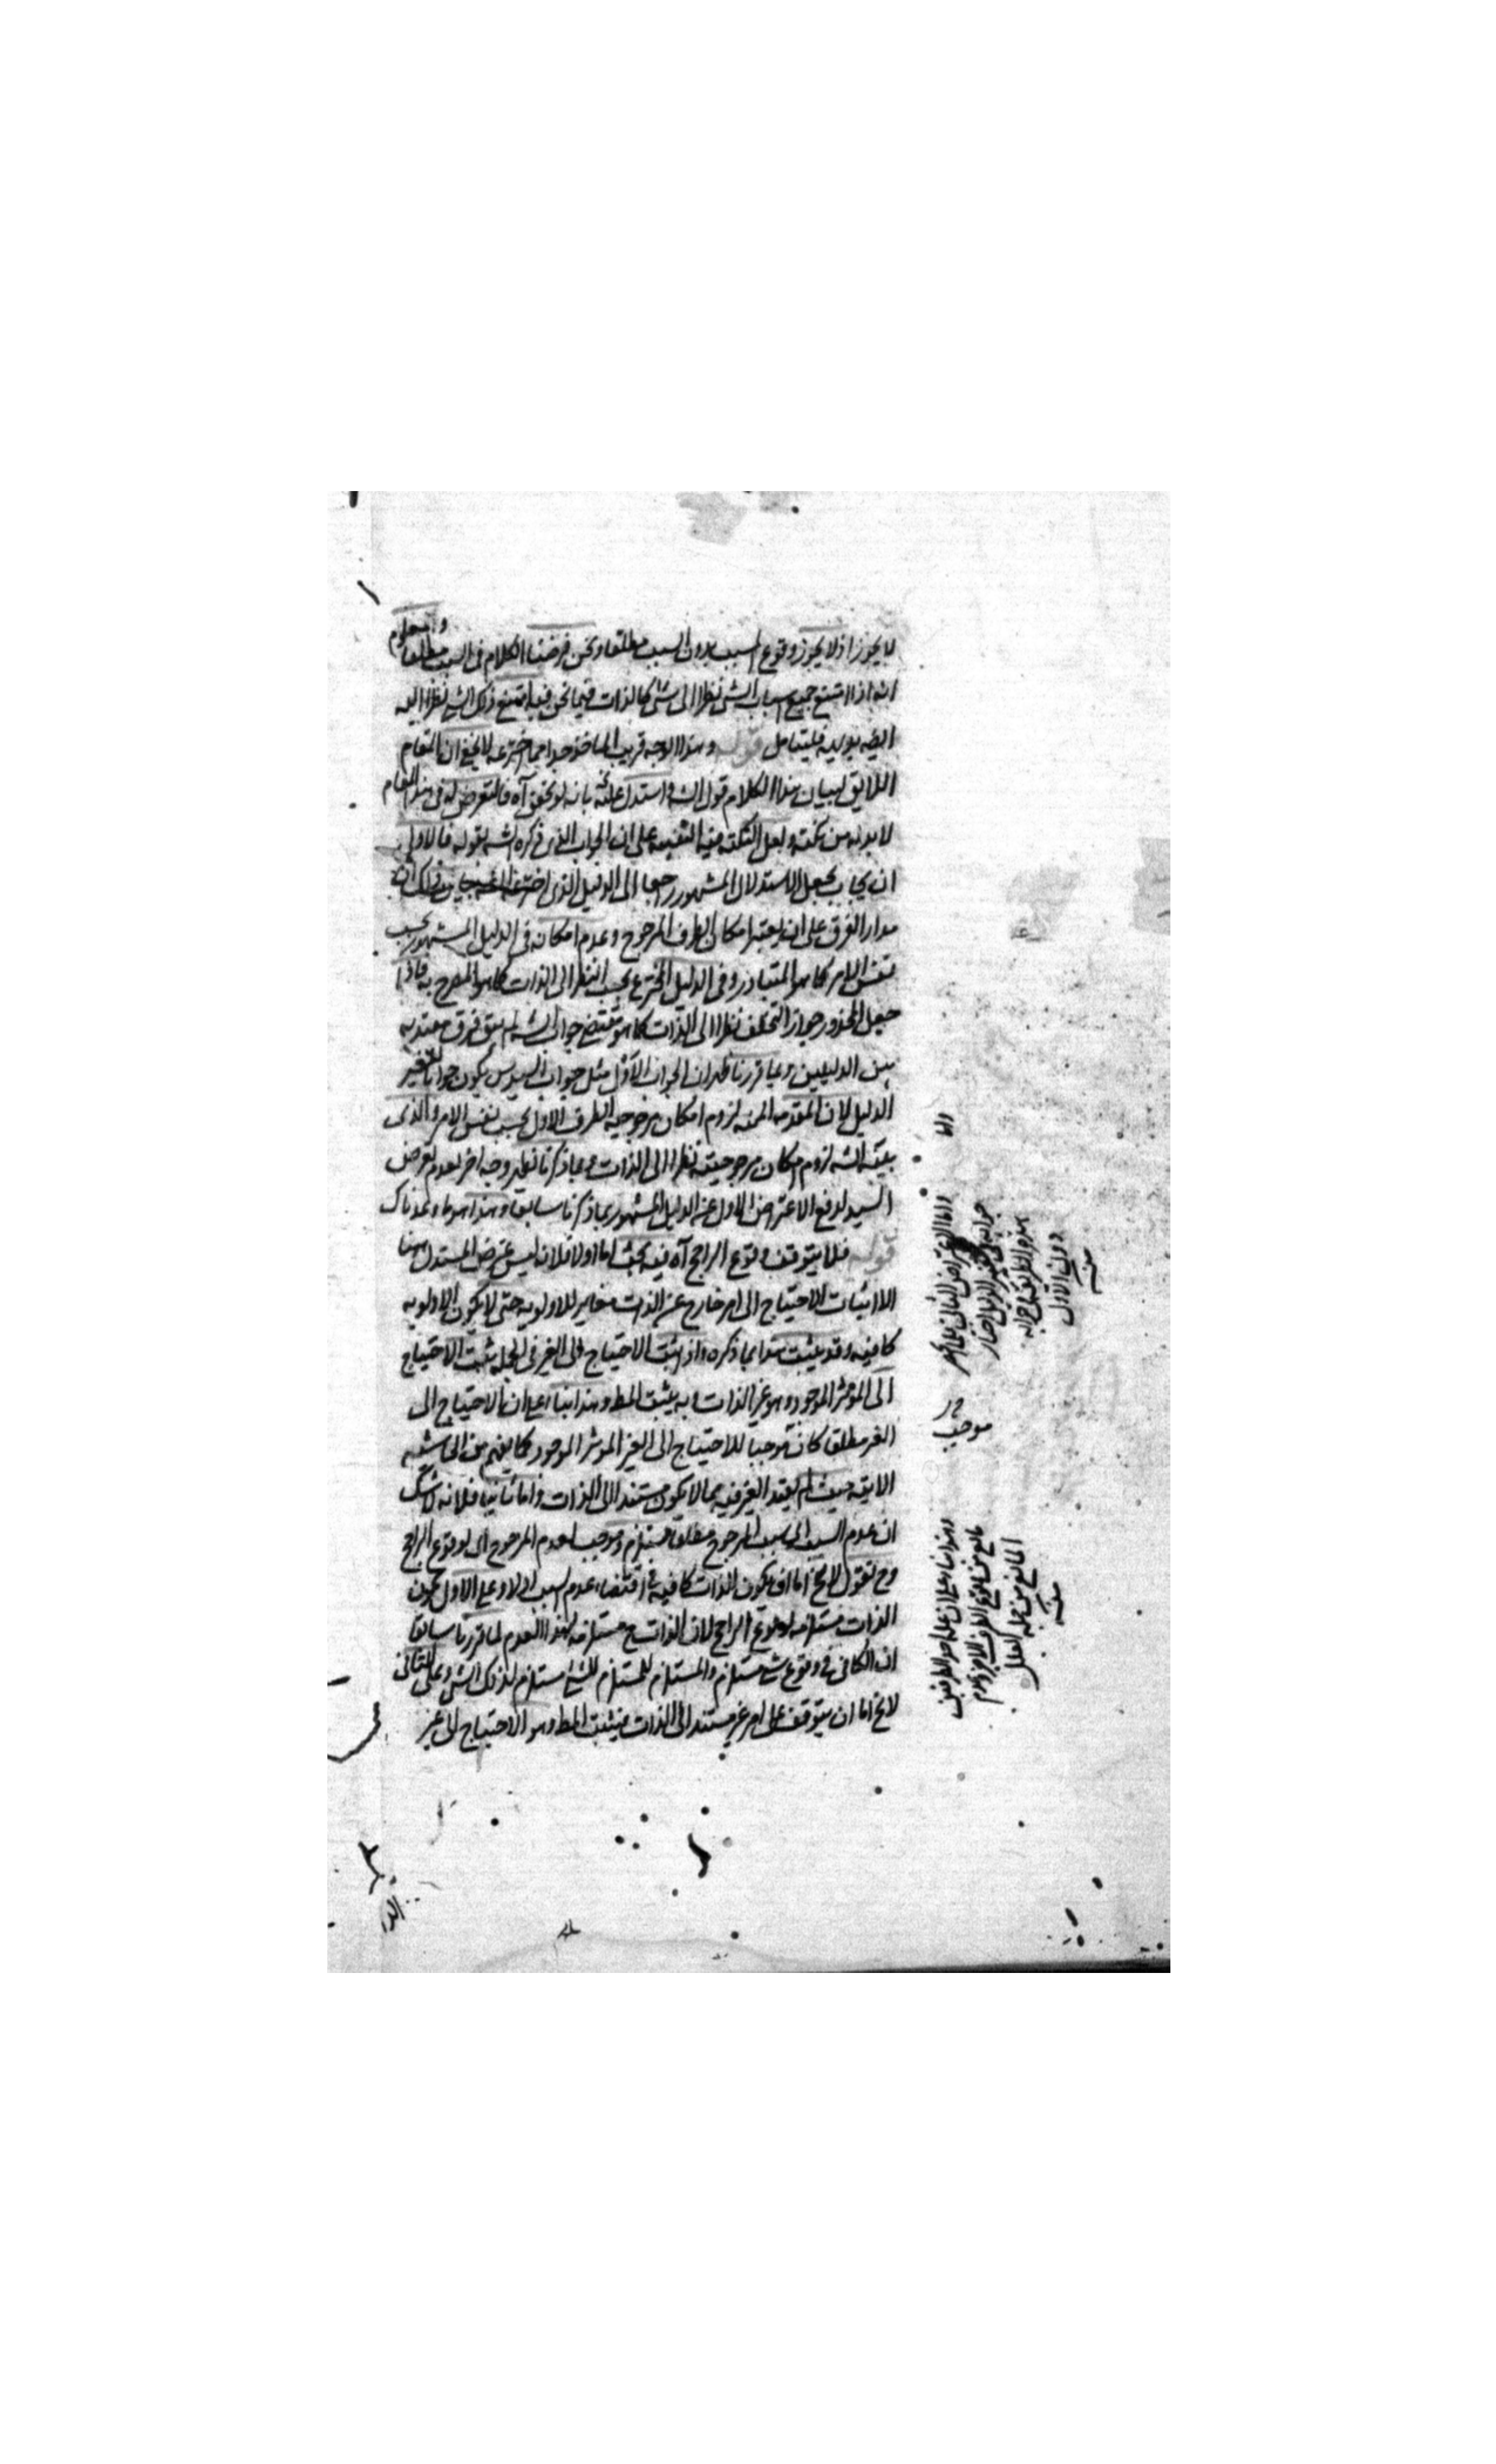 لا يجوز اذ لا يجوز وقوع المسبب بدون السبب مطلقا ونحن فرضنا الكلام في السبب مطلقا ومعلوم
انه اذا امتنع جميع اسباب الشئ نظرا الى شئ كالذات فيما نحن فيه امتنع ذلك الشئ نظرا اليه
فليتامل قوله وهذا الوجه قريب الماخذ جدا مما اخترعه لا يخفى ان المقام
اللايق لبيان هذا الكلام قول الشه واستدل عليه بانه لو تحقق آه فالتعرض له في هذا المقام
لا بد له من نكتة ولعل النكتة فيه التنبيه على ان الجواب الذى ذكره الشه بقوله فالاولى
ان يجاب يجعل الاستدلال المشهور راجعا الى الدليل الذى اخترعه
مدار الفرق على ان يعتبر امكان الطرف المرجوح وعدم امكانه في الدليل المشهور بحسب
نفس الامر كما هو المتبادر وفي الدليل المخترع بحسب النظر الى الذات كما هو المصرح به فاذا
جعل المحذور جواز التخلف نظرا الى الذات كما هو مقتضى جواب الشه لم يبق فرق معتد به
بين الدليلين وبما قررنا ظهر ان الجواب الاول مثل جواب السيد س يكون جوابا لتغيير
الدليل لان المقدمه الممنوعه لزوم امكان مرجوحية الطرف الاول بحسب نفس الامر والذى
بينه الشه لزوم امكان مرجوحيته نظرا الى الذات وبما ذكرنا ظهر وجه اخر لعدم تعرض
السيد لدفع الاعتراض الاول عن الدليل المشهور بما ذكرنا سابقا وهذا هو ما وعدناك
قوله فلا يتوقف وقوع الراجح آه فيه بحث اما اولا فلانه ليس غرض المستدل ههنا
الا اثبات الاحتياج الى امر خارج عن الذات مغاير للاولويه حتى لا يكون الاولويه
كافيه وقد يثبت هذا بما ذكره واذ ثبت الاحتياج الى الغير في الجمله ثبت الاحتياج
الى المؤثر الموجود وهو غير الذات وبه يثبت المط وهذا بناء على ان الاحتياج الى
الغير مطلقا كان موجبا للاحتياج الى الغير المؤثر الموجود كما يفهم من الحاشيه
الاتيه حيث لم يقيد الغير فيه بما لا يكون مستندا الى الذات واما ثانيا فلانه لا شك
ان عدم السبب اى سبب المرجوح مطلقا مستلزم وموجب لعدم المرجوح اى لوقوع الراجح
وح نقول لا يخ اما ان يكون الذات كافيه في اقتضاء عدم السبب او لا وعلى الاول يكون
الذات مستلزمه لوقوع الراجح لان الذات ح مستلزمه لهذا العدم لما قررنا سابقا
ان الكافى في وقوع شئ مستلزم والمستلزم للمستلزم للشئ مستلزم لذلك الشئ وعلى الثانى
لا يخ اما ان يتوقف على امر غير مستند الى الذات فيثبت المط وهو الاحتياج الى غير
واما
واما الاعتراض الثانى
دون الاول
منه
موجب
وهذا بناء على ان علة احد الطرفين
مانع من وقوع الطرف الاخر وعدم
المانع من جملة العلل
منه